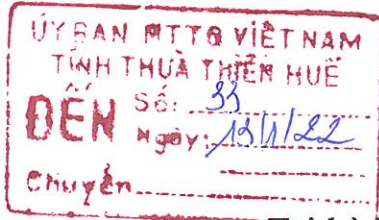 ỦY BAN MTTQ VIỆT NAM
TỈNH THỪA THIÊN HUẾ
ĐẾN
Số: 33
Ngày: 13/1/22
Chuyển